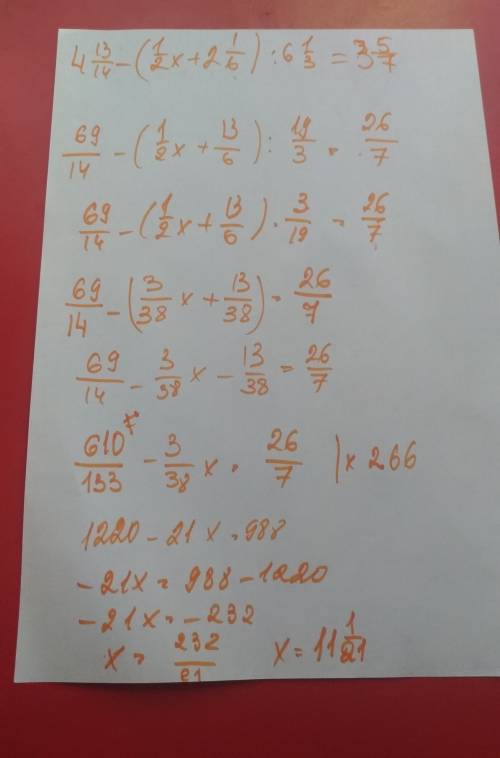 4 13/14 - (1/2 x + 2 1/6) : 6 1/3 = 3 5/7
69/14 - (1/2 x + 13/6) : 19/3 = 26/7
69/14 - (1/2 x + 13/6) · 3/19 = 26/7
69/14 - (3/38 x + 13/38) = 26/7
69/14 - 3/38 x - 13/38 = 26/7
610/133 - 3/38 x = 26/7 | x 266
1220 - 21x = 988
-21x = 988 - 1220
-21x = -232
x = 232/21 x = 11 1/21